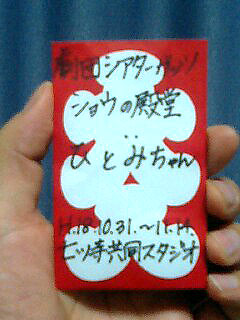 劇団シアター・ガッツ
ショウの殿堂
ひとみちゃん
H.18.10.31.〜11.14.
七ツ寺共同スタジオ